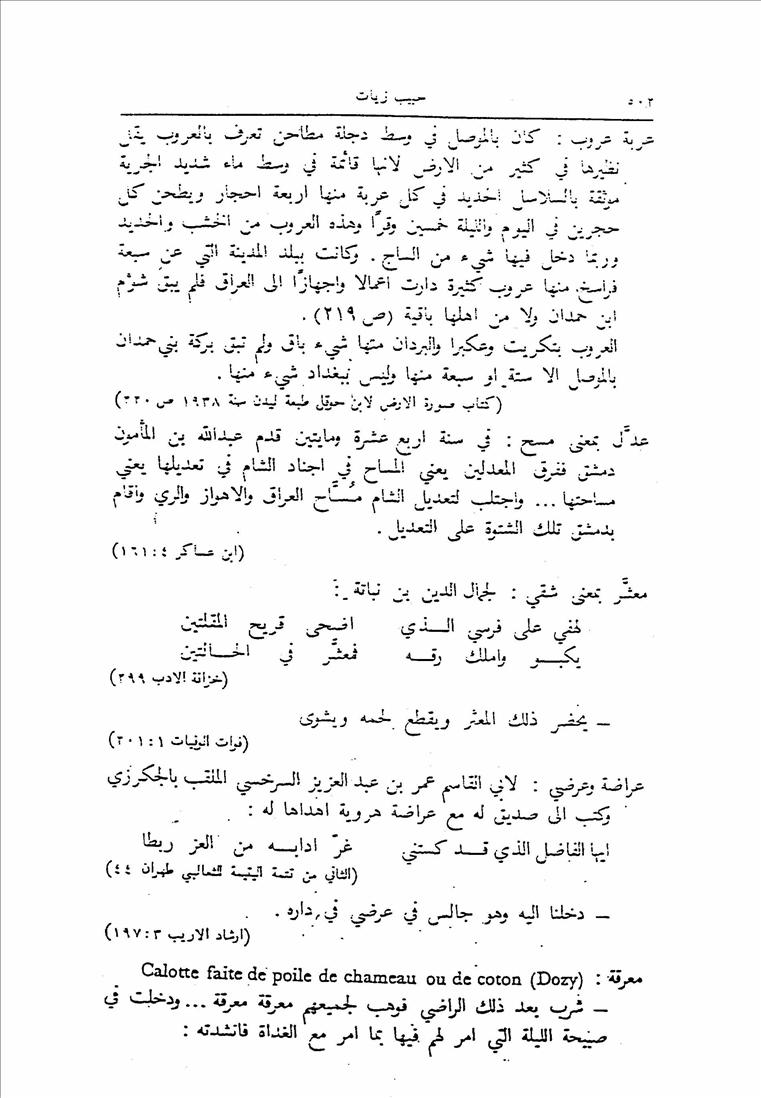 ٥٠٢ حبيب زيات
عربة عروب : كان بالموصل في وسط دجلة مطاحن تعرف بالعروب يقل
نظيرها في كثير من الارض لانها قائمة في وسط ماء شديد الجرية
موثقة بالسلاسل الحديد في كل عربة منها اربعة احجار ويطحن كل
حجرين في اليوم والليلة خمسين وقرًا وهذه العروب من الخشب والحديد
وربما دخل فيها شيء من الساج . وكانت ببلد المدينة التي عن سبعة
فراسخ منها عروب كثيرة دارت اعمالا واجهازًا الى العراق فلم يبق شؤم
ابن حمدان ولا من اهلها باقية (ص ٢١٩) .
العروب بتكريت وعكبرا والبردان منها شيء باق ولم تبق بركة بني حمدان
بالموصل الا ستة او سبعة منها وليس ببغداد شيء منها .
(كتاب صورة الارض لابن حوقل طبعة ليدن سنة ١٩٣٨ ص ٢٢٠)
عدَّل بمعنى مسح : في سنة اربع عشرة ومايتين قدم عبدالله بن المأمون
دمشق ففرق المعدلين يعني المساح في اجناد الشام في تعديلها يعني
مساحتها ... واجتلب لتعديل الشام مُسَّاح العراق والاهواز والري واقام
بدمشق تلك الشتوة على التعديل .
(ابن عساكر ٤ : ١٦١)
معثَّر بمعنى شقي : لجمال الدين بن نباتة :
لهفي على فرسي الـذي اضحى قريح المقلتين
يكبـو واملك رقـه فمعثَّر في الحـالتين
(خزانة الادب ٣٩٩)
– يحضر ذلك المعثر ويقطع لحمه ويشوى
(فوات الوفيات ١ : ٢٠١)
عراضة وعرضي : لابي القاسم عمر بن عبد العزيز السرخسي الملقب بالجكرزي
وكتب الى صديق له مع عراضة هروية اهداها له :
ايها الفاضل الذي قـد كستني غرّ ادابـه من العز ريطا
(الثاني من تتمة اليتيمة للثعالبي طهران ٤٤)
– دخلنا اليه وهو جالس في عرضي في داره .
(ارشاد الاريب ٣ : ١٩٧)
معرقة : Calotte faite de poile de chameau ou de coton (Dozy)
– شرب بعد ذلك الراضي فوهب لجميعهم معرقة معرقة ... ودخلت في
صبيحة الليلة التي امر لهم فيها بما امر مع الغداة فانشدته :